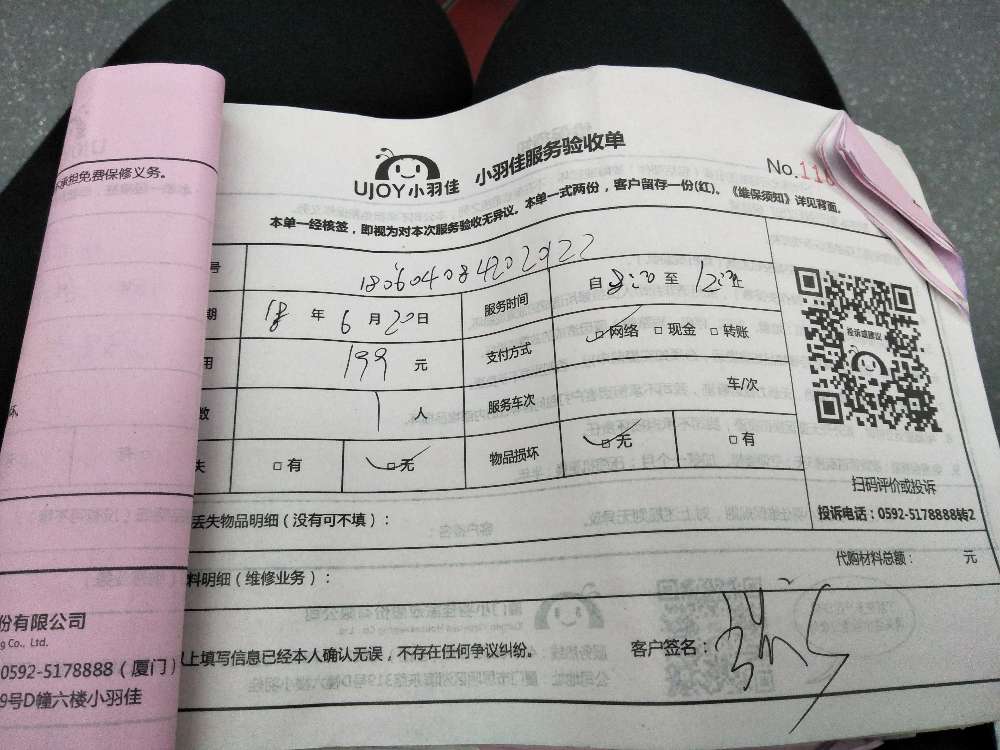 不承担免费保修义务。
UJOY小羽佳 小羽佳服务验收单
No.116
本单一经核签，即视为对本次服务验收无异议。本单一式两份，客户留存一份(红)。《维保须知》详见背面。
号 180604084202922
期 18 年 6 月 20 日 服务时间 自 8:30 至 12:30 止
用 199 元 支付方式 □网络 □现金 □转账
数 1 人 服务车次 车/次
失 □有 □无 物品损坏 □无 □有
投诉或建议
扫码评价或投诉
投诉电话：0592-5178888转2
丢失物品明细（没有可不填）：
代购材料总额： 元
料明细（维修业务）：
上填写信息已经本人确认无误，不存在任何争议纠纷。 客户签名：
份有限公司
g Co., Ltd.
0592-5178888（厦门）
9号D幢六楼小羽佳